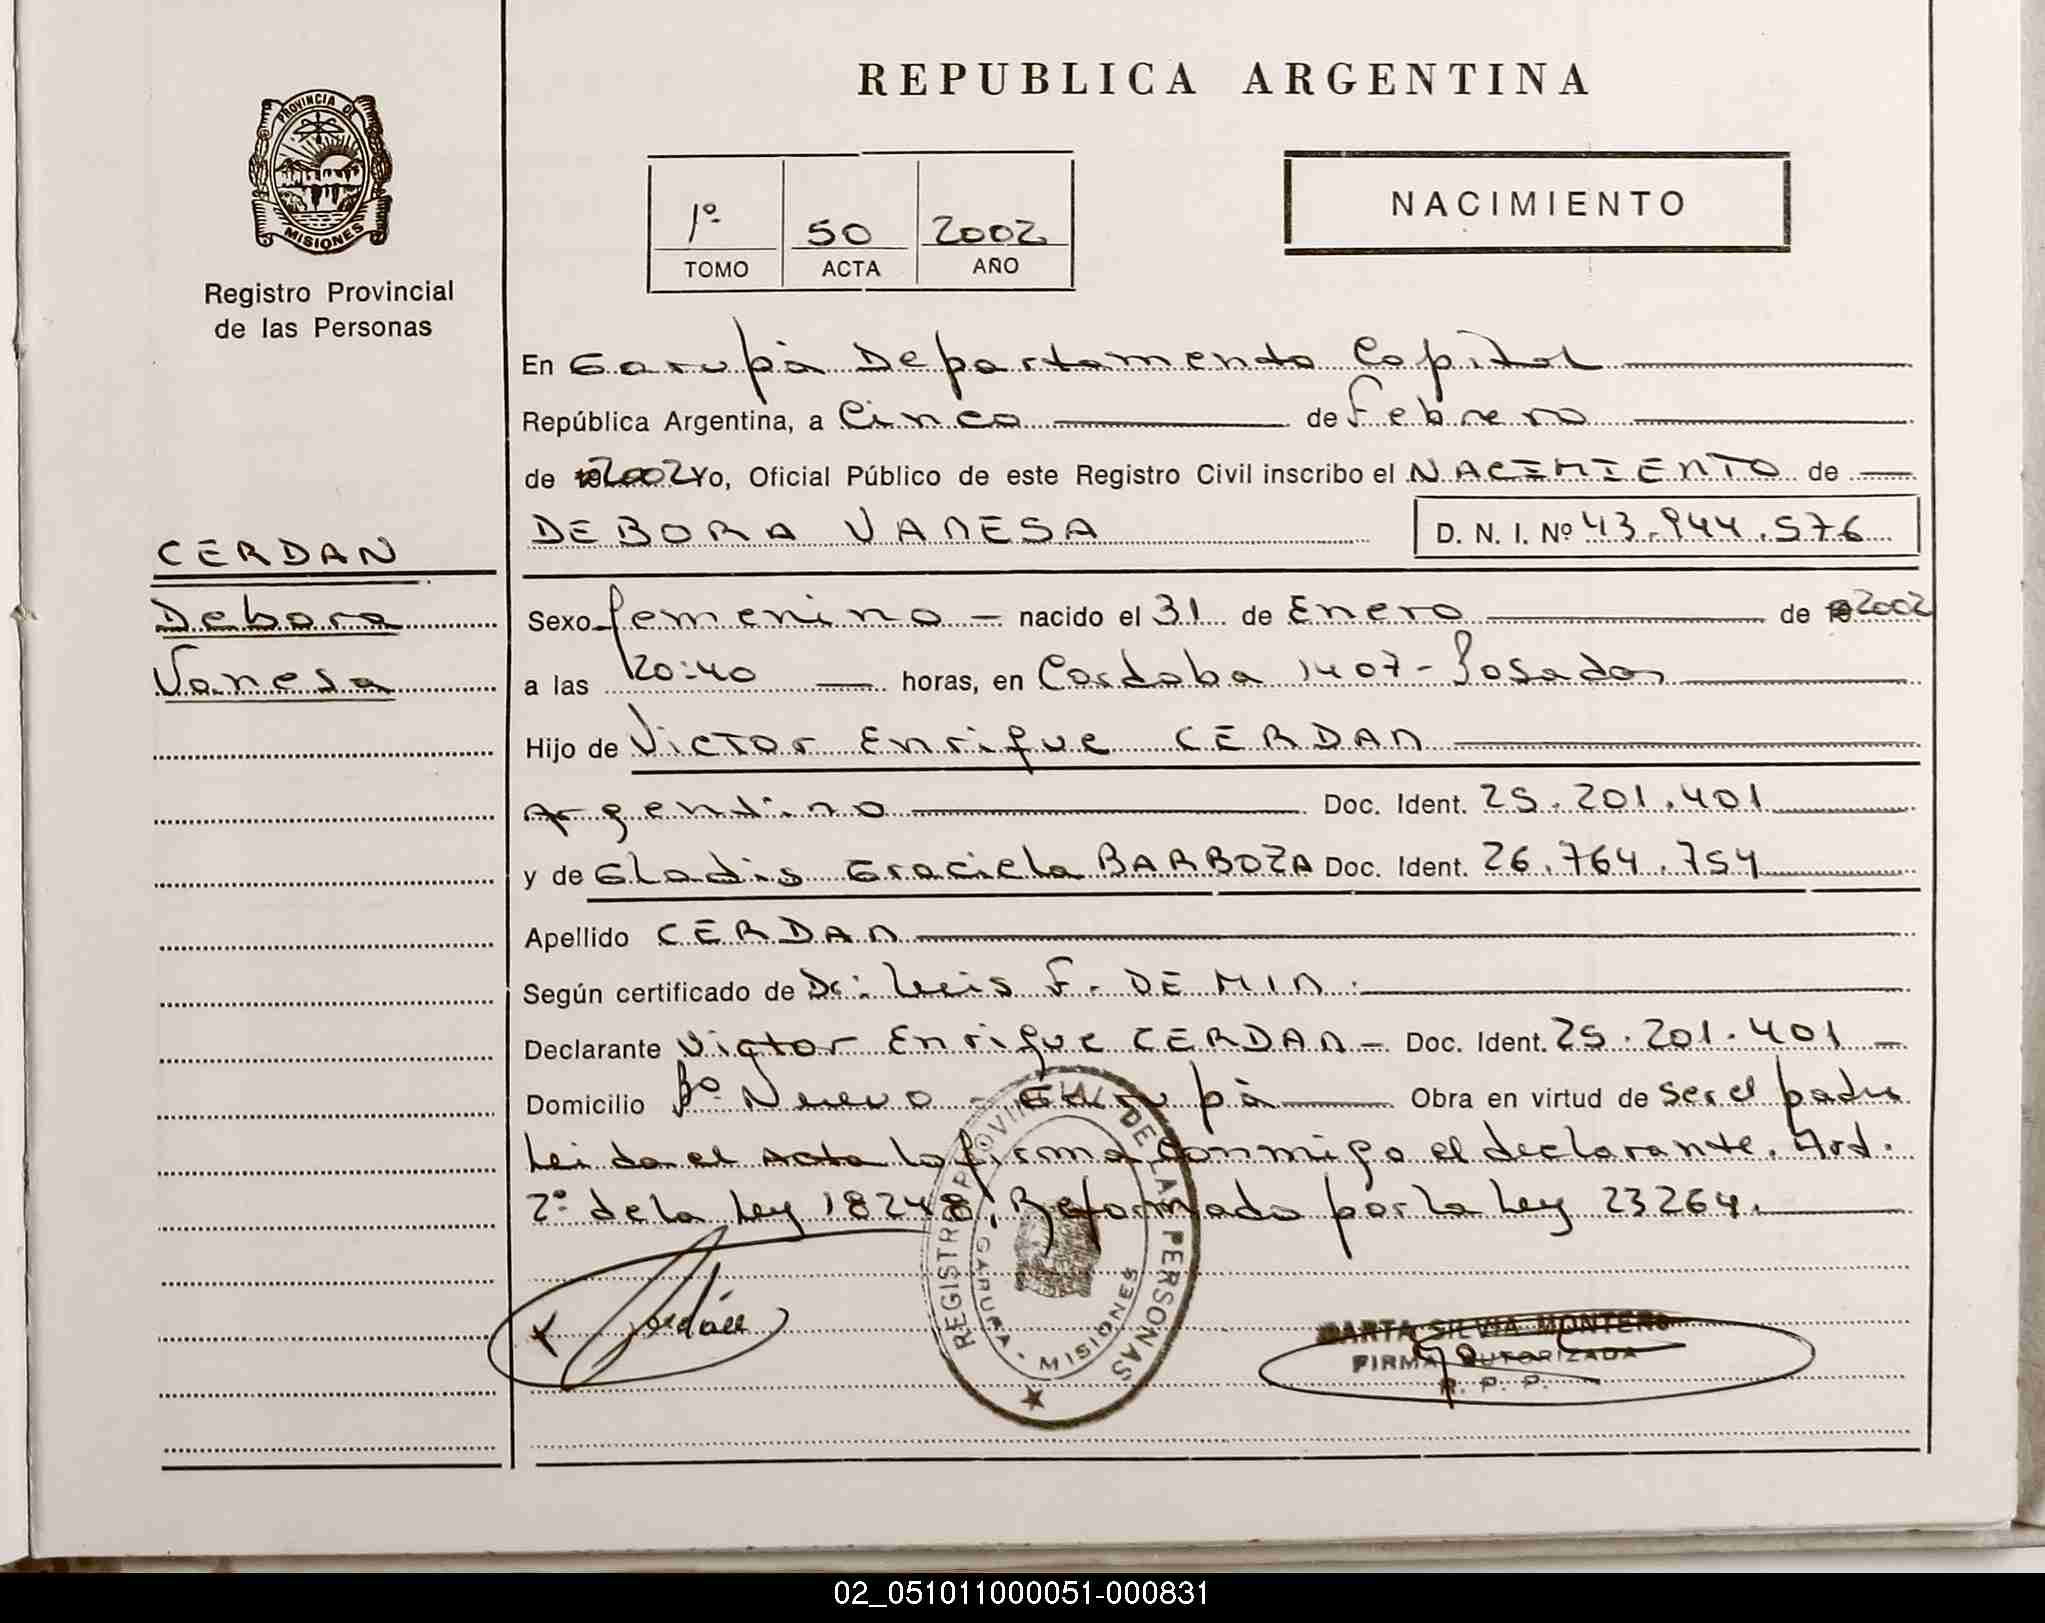 REPUBLICA ARGENTINA
PROVINCIA DE
MISIONES
Registro Provincial
de las Personas
1º 50 2002
TOMO ACTA AÑO
NACIMIENTO
En Garupá Departamento Capital
República Argentina, a Cinco de Febrero
de 2002 Yo, Oficial Público de este Registro Civil inscribo el NACIMIENTO de
DEBORA VANESA D. N. I. Nº 43.944.576
CERDAN
Debora
Vanesa
Sexo femenino - nacido el 31 de Enero de 2002
a las 20:40 horas, en Cordoba 1407 - Posadas
Hijo de Victor Enrique CERDAN
Argentino Doc. Ident. 25.201.401
y de Gladis Graciela BARBOZA Doc. Ident. 26.764.754
Apellido CERDAN
Según certificado de Dr: Luis F. DE MIN.
Declarante Victor Enrique CERDAN - Doc. Ident. 25.201.401 -
Domicilio Bº Nuevo - Garupá Obra en virtud de ser el padre
Leida el Acta la firma conmigo el declarante. Art.
2º de la Ley 18248, Reformado por la Ley 23264.
REGISTRO PROVINCIAL DE LAS PERSONAS
GARUPA - MISIONES
MARTA SILVIA MONTERO
FIRMA AUTORIZADA
R. P. P.
02_051011000051-000831